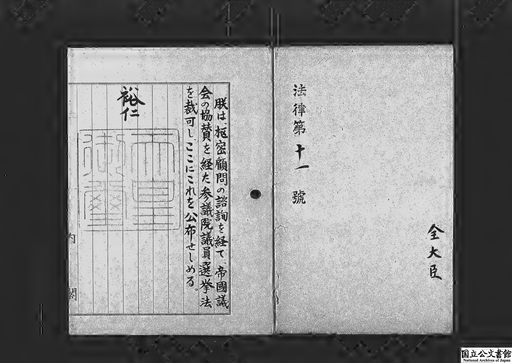 全大臣
法律第十一號
朕は、枢密顧問の諮詢を経て、帝國議
会の協賛を経た参議院議員選挙法
を裁可し、ここにこれを公布せしめる。
裕仁
天皇
御璽
内閣
国立公文書館
National Archives of Japan